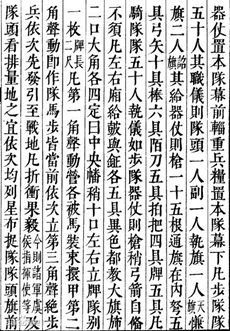 器仗置本隊幕前輜重兵糧置本隊幕下凡步隊隊
五十人其職儀則隊頭一人副一人執旗一人
旗二人其給器仗則槍一十五根通旗在内弩五
具弓矢十具棒六具陌刀五具拍把四具牌五具凡
騎隊隊五十人執儀如步隊器仗則槍稍弓箭自餘
不須凡左右廂給皷與鉦各五具異色都教大旗旆
二口大角各四定曰中央幡稍十口左右立牌隊別
一枚牌長二尺凡第一角聲動營各被馬裝束擐甲第二
角聲動即作隊馬步皆當前依次立第三角聲絶步
兵依次先發引至戰地凡折衝果毅今則諸軍虞候指揮使等
隊頭看排量地之宜依次均列星布挺隊隊頭旗前